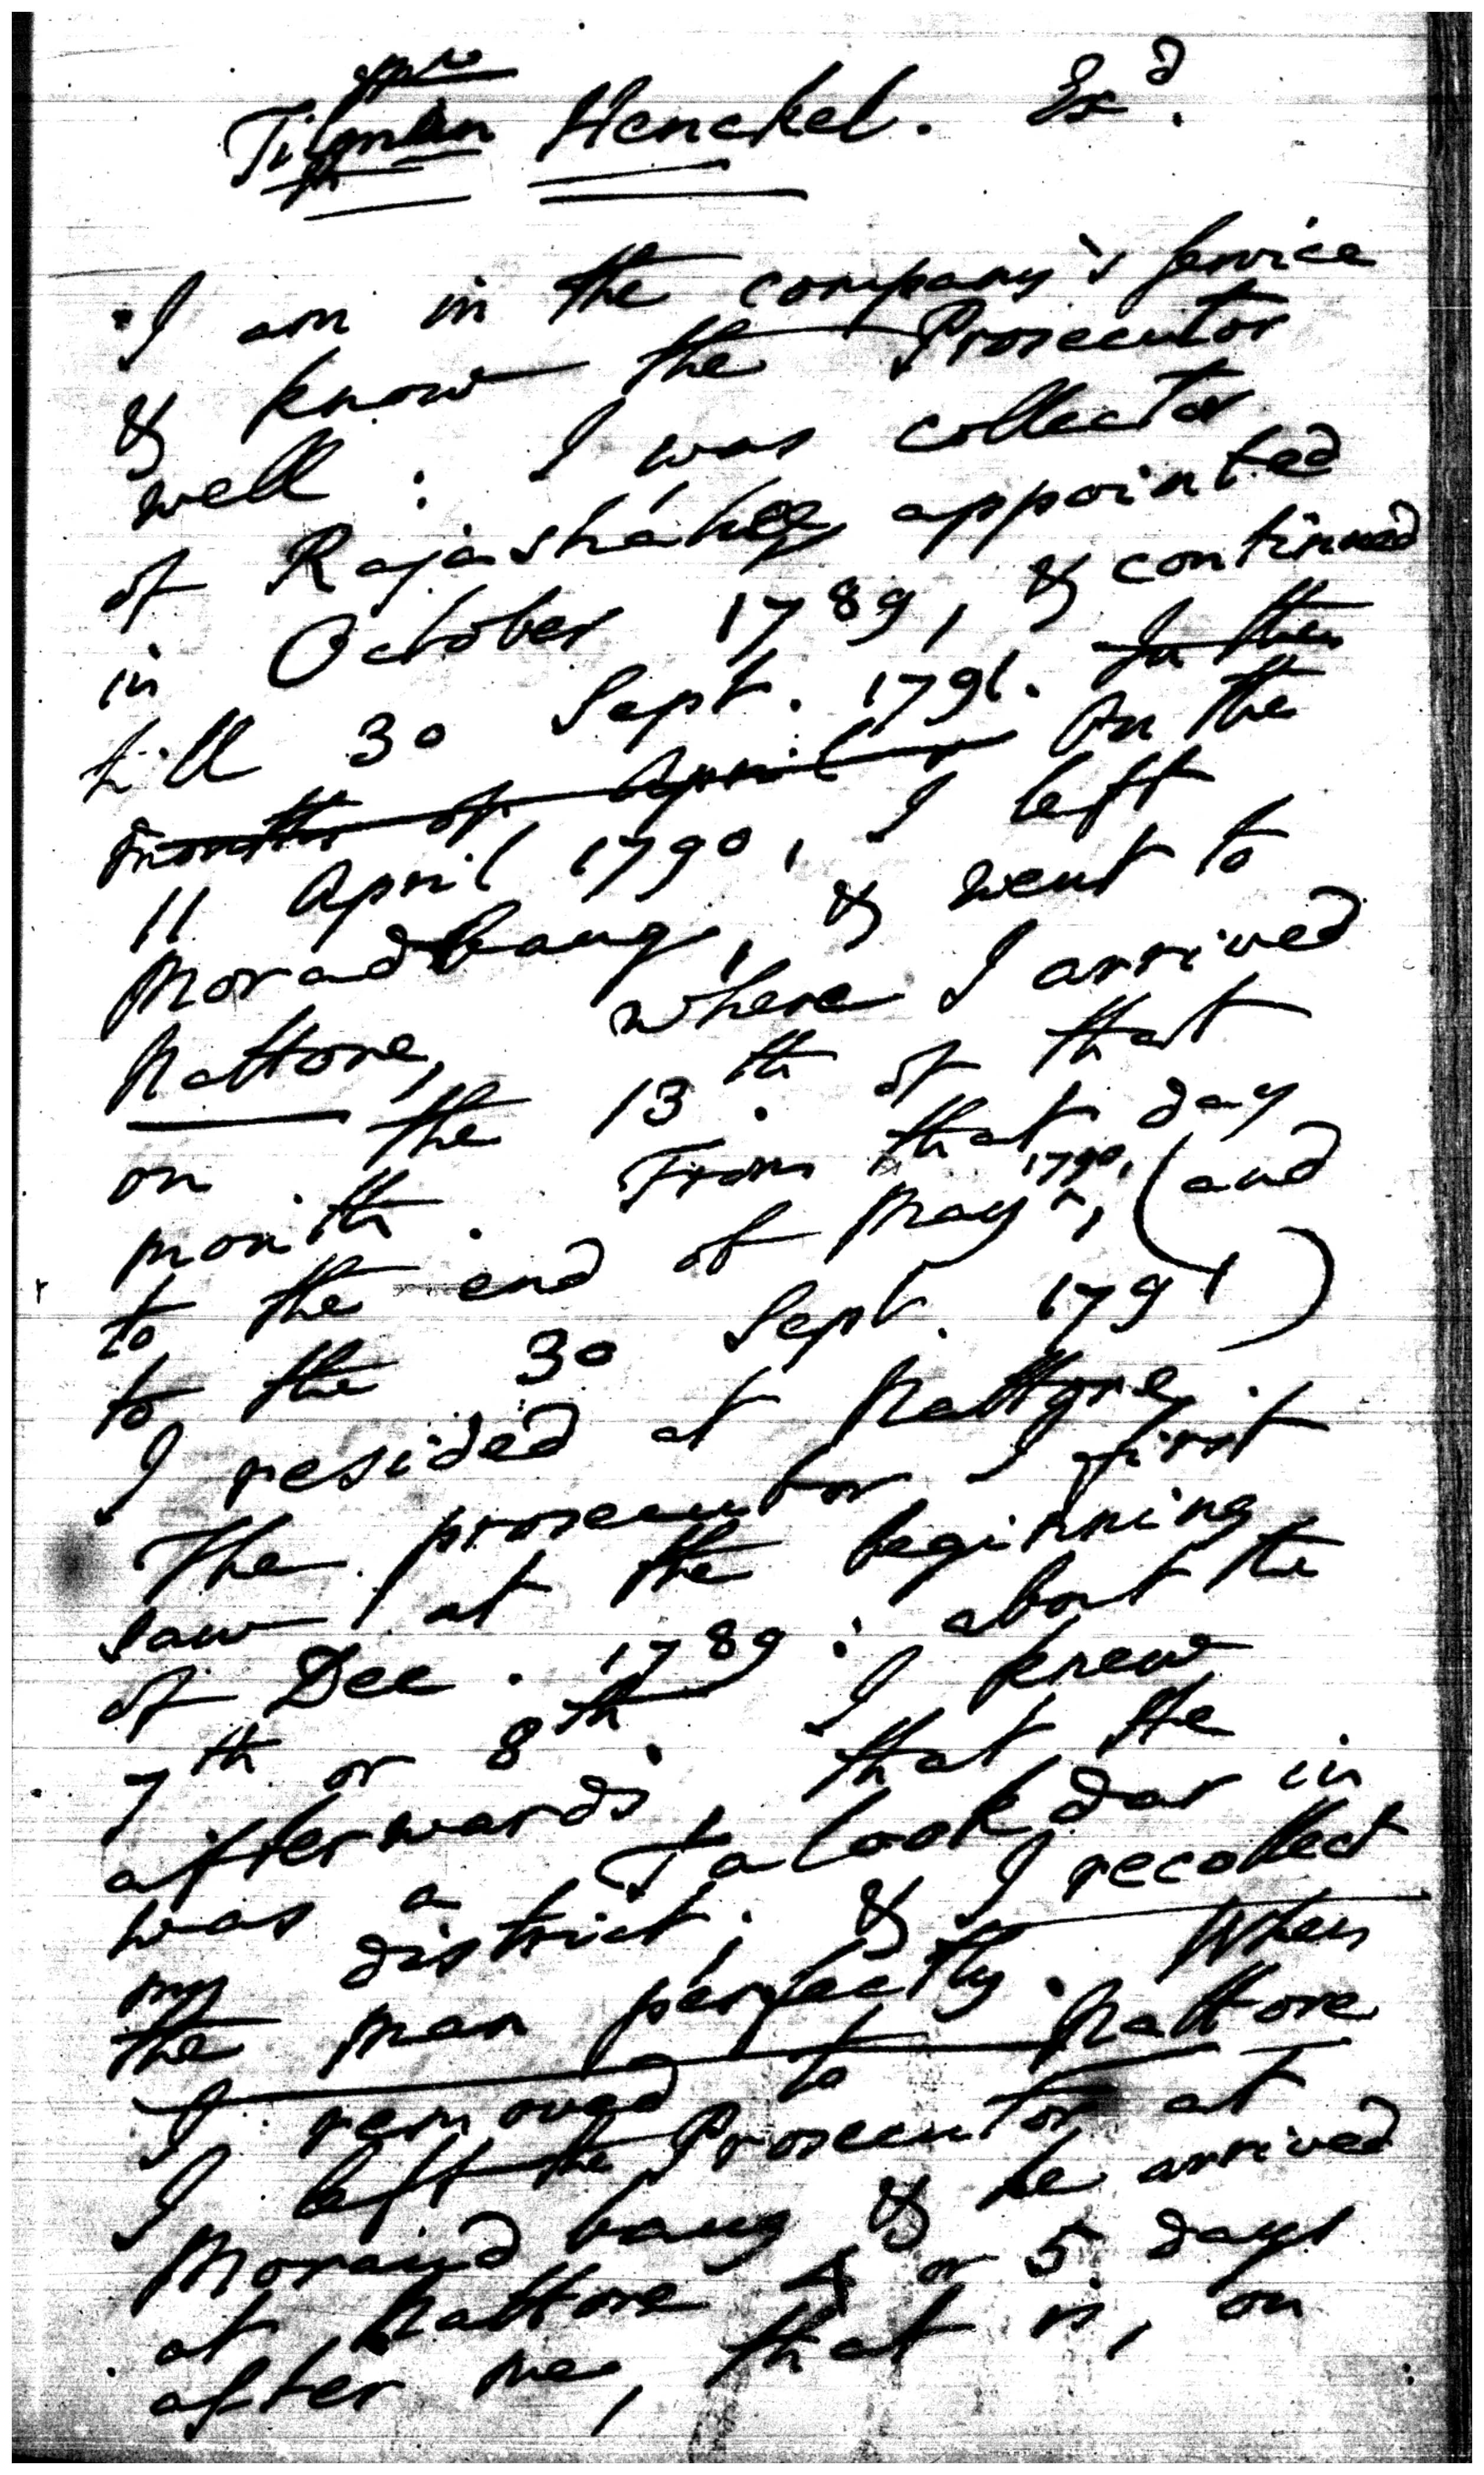 Tilman Henckel. Exd.
I am in the company's service
& know the Prosecutor
well : I was collector
of Rajashahy, appointed
in October 1789, & continued
till 30 Sept. 1791. In the
month of April On the
11 April 1790, I left
Moradbaug, & went to
Nattore, where I arrived
on the 13th. of that
month. From that day
to the end of May 1790, (and
to the 30 Sept. 1791)
I resided at Nattore.
The prosecutor I first
saw at the beginning
of Dec. 1789 : about the
7th or 8th. I knew
afterwards, that He
was a Talookdar in
my district; & I recollect
the man perfectly. When
I removed to Nattore
I left the Prosecutor at
Moraudbaug & he arrived
at Nattore 4 or 5 days
after me, that is, on